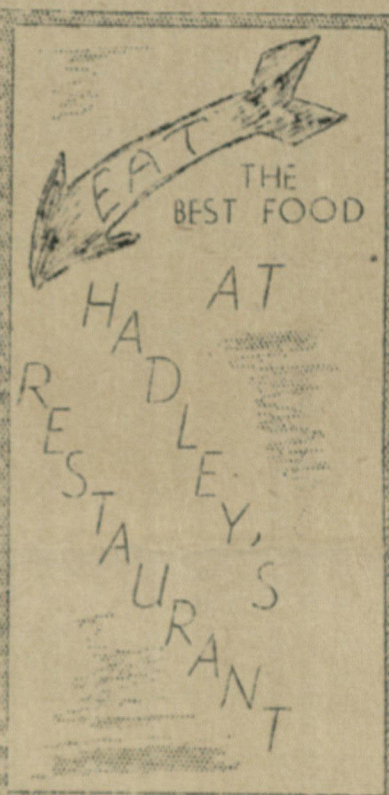 EAT
THE
BEST FOOD
AT
HADLEY'S
RESTAURANT